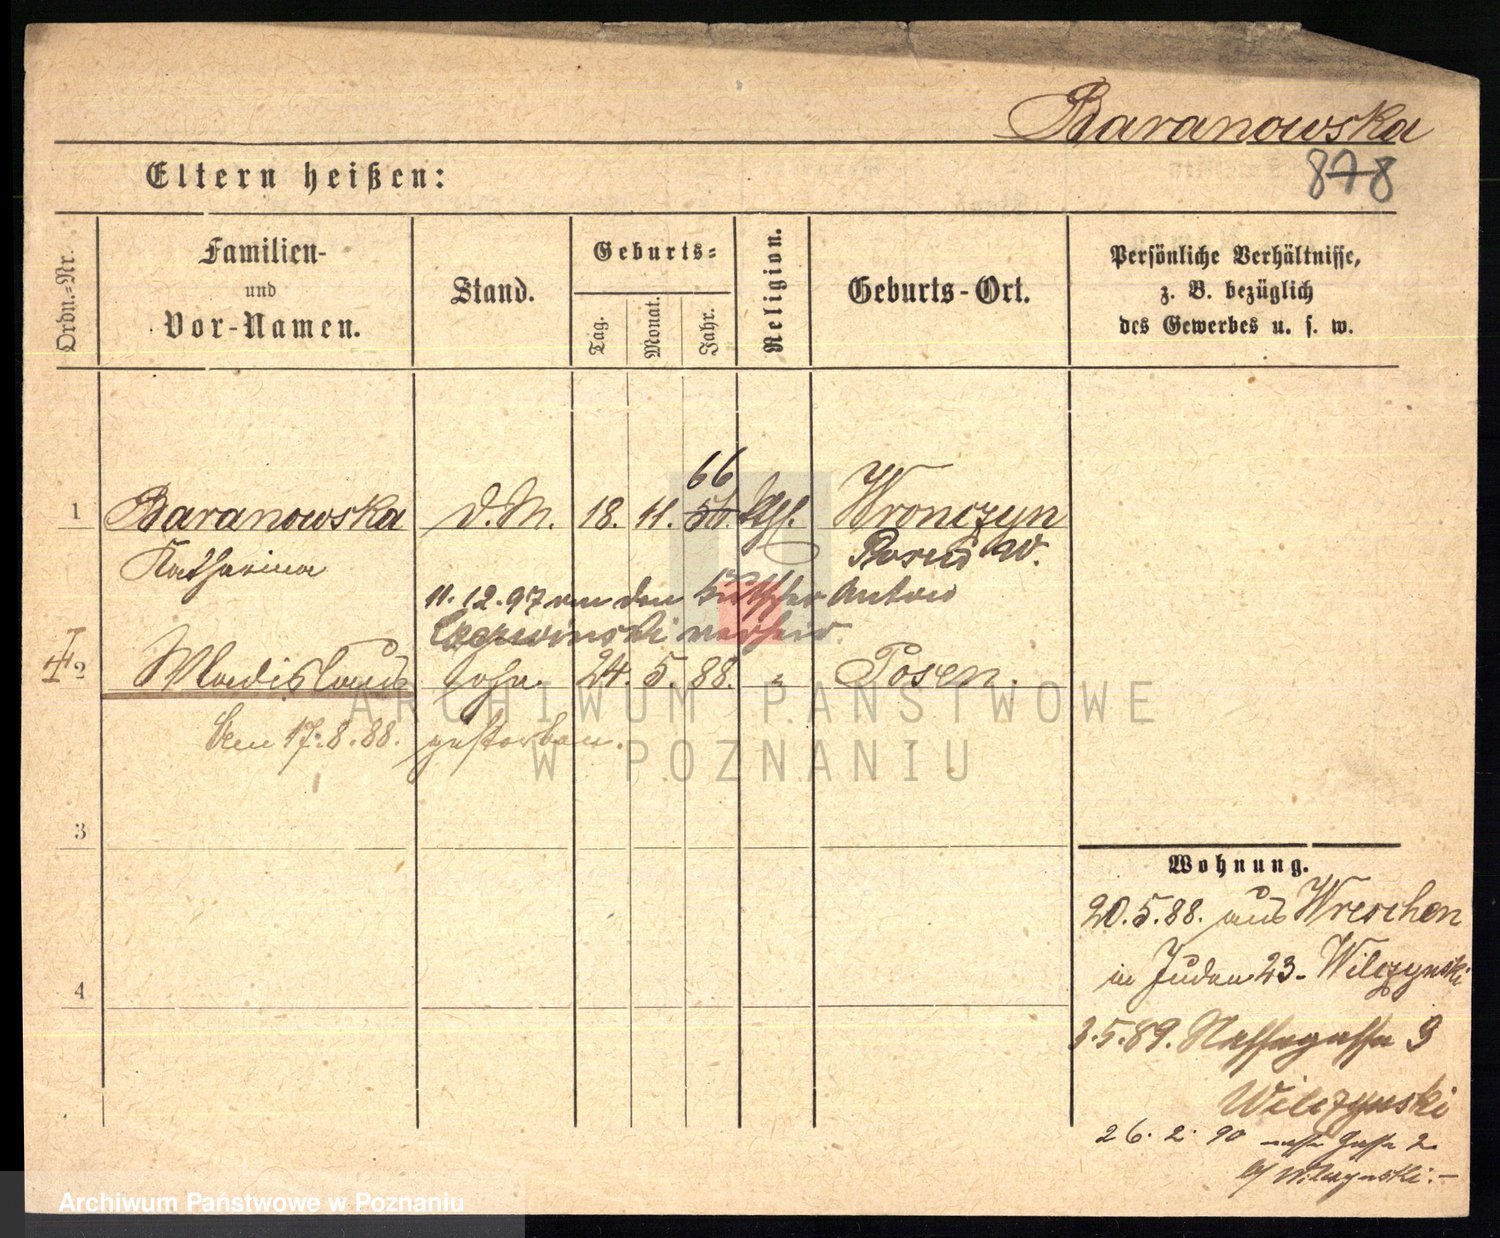 Baranowska
Eltern heißen:
878
Ordn.-Nr.
Familien-
und
Vor-Namen.
Stand.
Geburts-
Tag.
Monat.
Jahr.
Religion.
Geburts-Ort.
Persönliche Verhältnisse,
z. B. bezüglich
des Gewerbes u. s. w.
66
1 Baranowska d. M. 18. 11. kth. Wronczyn
Katharina Posen W.
11. 12. 97 von den Kutscher Anton
verheir.
2 Wladislaus Sohn. 24. 5. 88. " Posen.
Dem 17. 8. 88. gestorben.
ARCHIWUM PAŃSTWOWE
W POZNANIU
3
Wohnung.
20. 5. 88. aus Wreschen
in Juden 23- Wilczynski
4
3. 5. 89. Nassegasse 9
Wilczynski
26. 2. 90 nasse Gasse 2
b/ Wilczynski.-
Archiwum Państwowe w Poznaniu